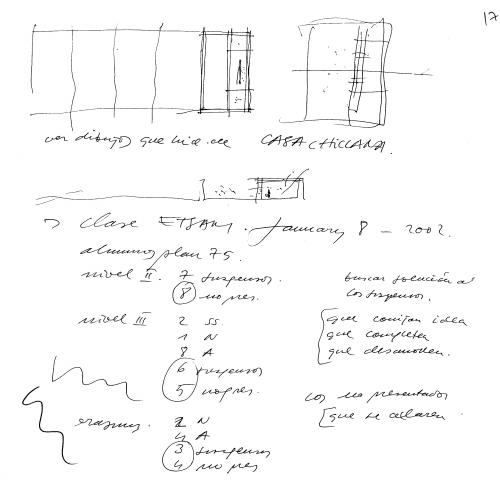 17
ver dibujos que hice de CASA CHICLANA.
> clase ETSAM. January 8 - 2002.
alumnos plan 75.
nivel II. 7 suspensos.
8 no pres.
buscar solución a
los suspensos.
nivel III 2 SS.
1 N
8 A
6 suspensos
5 no pres.
que completen
que desarrollen.
los no presentados
que se aclaren.
erasmus. 2 N
4 A
3 suspensos
4 no pres